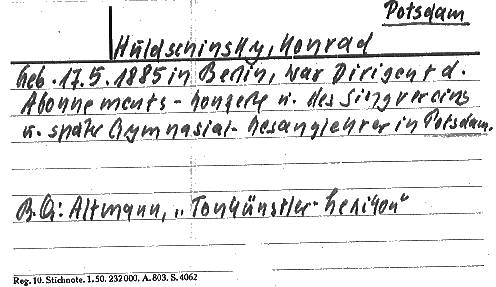 Potsdam
Huldschinsky, Konrad
Geb. 17.5.1885 in Berlin, war Dirigent d.
Abonnements-Konzerte u. des Singvereins
u. später Gymnasial-Gesanglehrer in Potsdam.
B.Q: Altmann, „Tonkünstler-Lexikon"
Reg. 10. Stichnote. 1. 50. 232000. A. 803. S. 4062